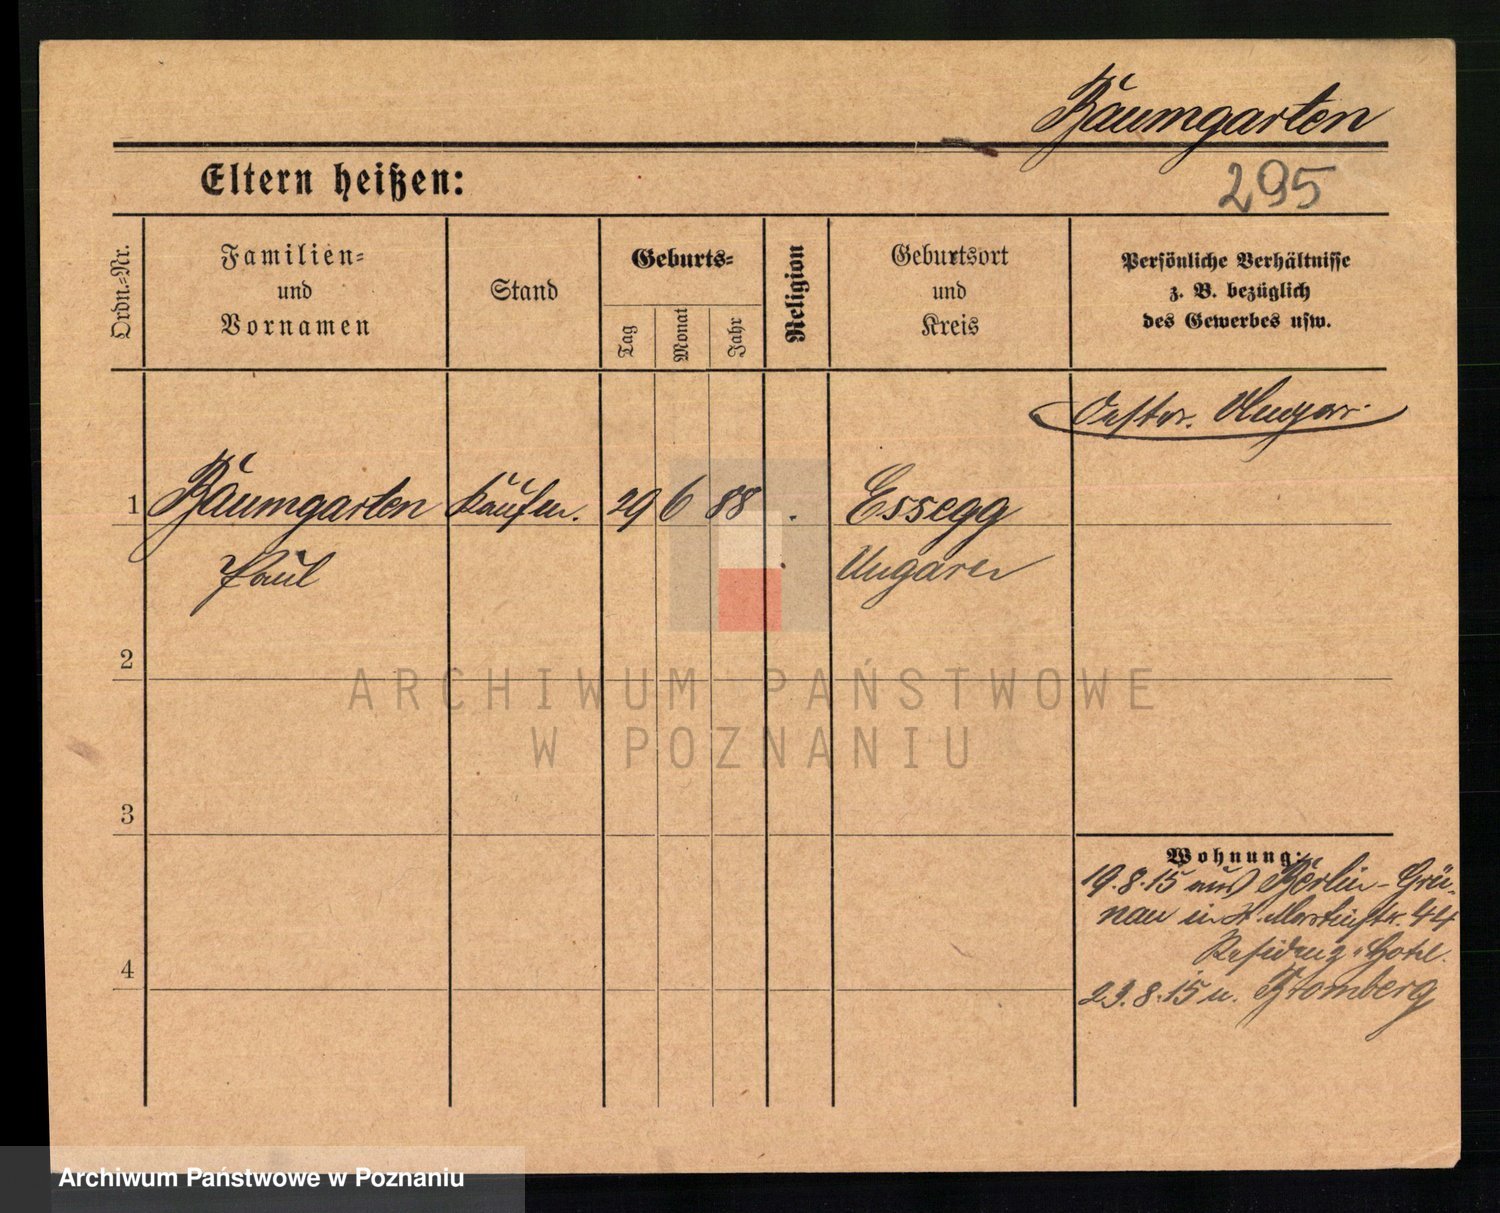 Baumgarten
Eltern heißen:
295
Ordn.-Nr.
Familien-
und
Vornamen
Stand
Geburts-
Tag
Monat
Jahr
Religion
Geburtsort
und
Kreis
Persönliche Verhältnisse
z. B. bezüglich
des Gewerbes usw.
Oester. Ungar.
1 Baumgarten Kaufm. 29 6 88 . Essegg
Paul Ungarn
ARCHIWUM PAŃSTWOWE
W POZNANIU
2
3
4
Wohnung:
19.8.15 aus Berlin-Grü-
nau in St. Martinstr. 44
Residenz-Hotel.
23.8.15 n. Bromberg
Archiwum Państwowe w Poznaniu